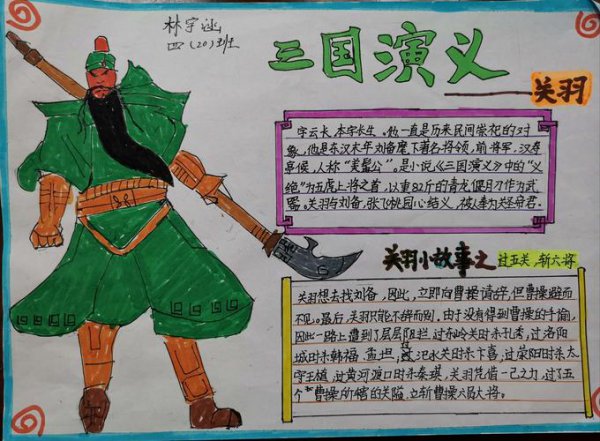 林宇涵
四(20)班
三国演义
——关羽
字云长,本字长生,他一直是历来民间崇祀的对
象,他是东汉末年刘备麾下著名将领,前将军,汉寿
亭侯,人称“美髯公”。是小说《三国演义》中的“义
绝”为五虎上将之首,以重82斤的青龙偃月刀作为武
器。关羽与刘备、张飞桃园心结义,被人奉为关圣帝君.
关羽小故事之 过五关,斩六将
关羽想去找刘备,因此,立即向曹操请辞,但曹操避而
不见。最后,关羽只能不辞而别,由于没有得到曹操的手谕,
因此一路上遭到了层层阻拦,过东岭关时杀孔秀,过洛阳
城时杀韩福、孟坦,汜水关时杀卞喜,过荥阳时杀太
守王植,过黄河渡口时杀秦琪,关羽凭借一己之力,过了五
个曹操所辖的关隘,立斩曹操六员大将。